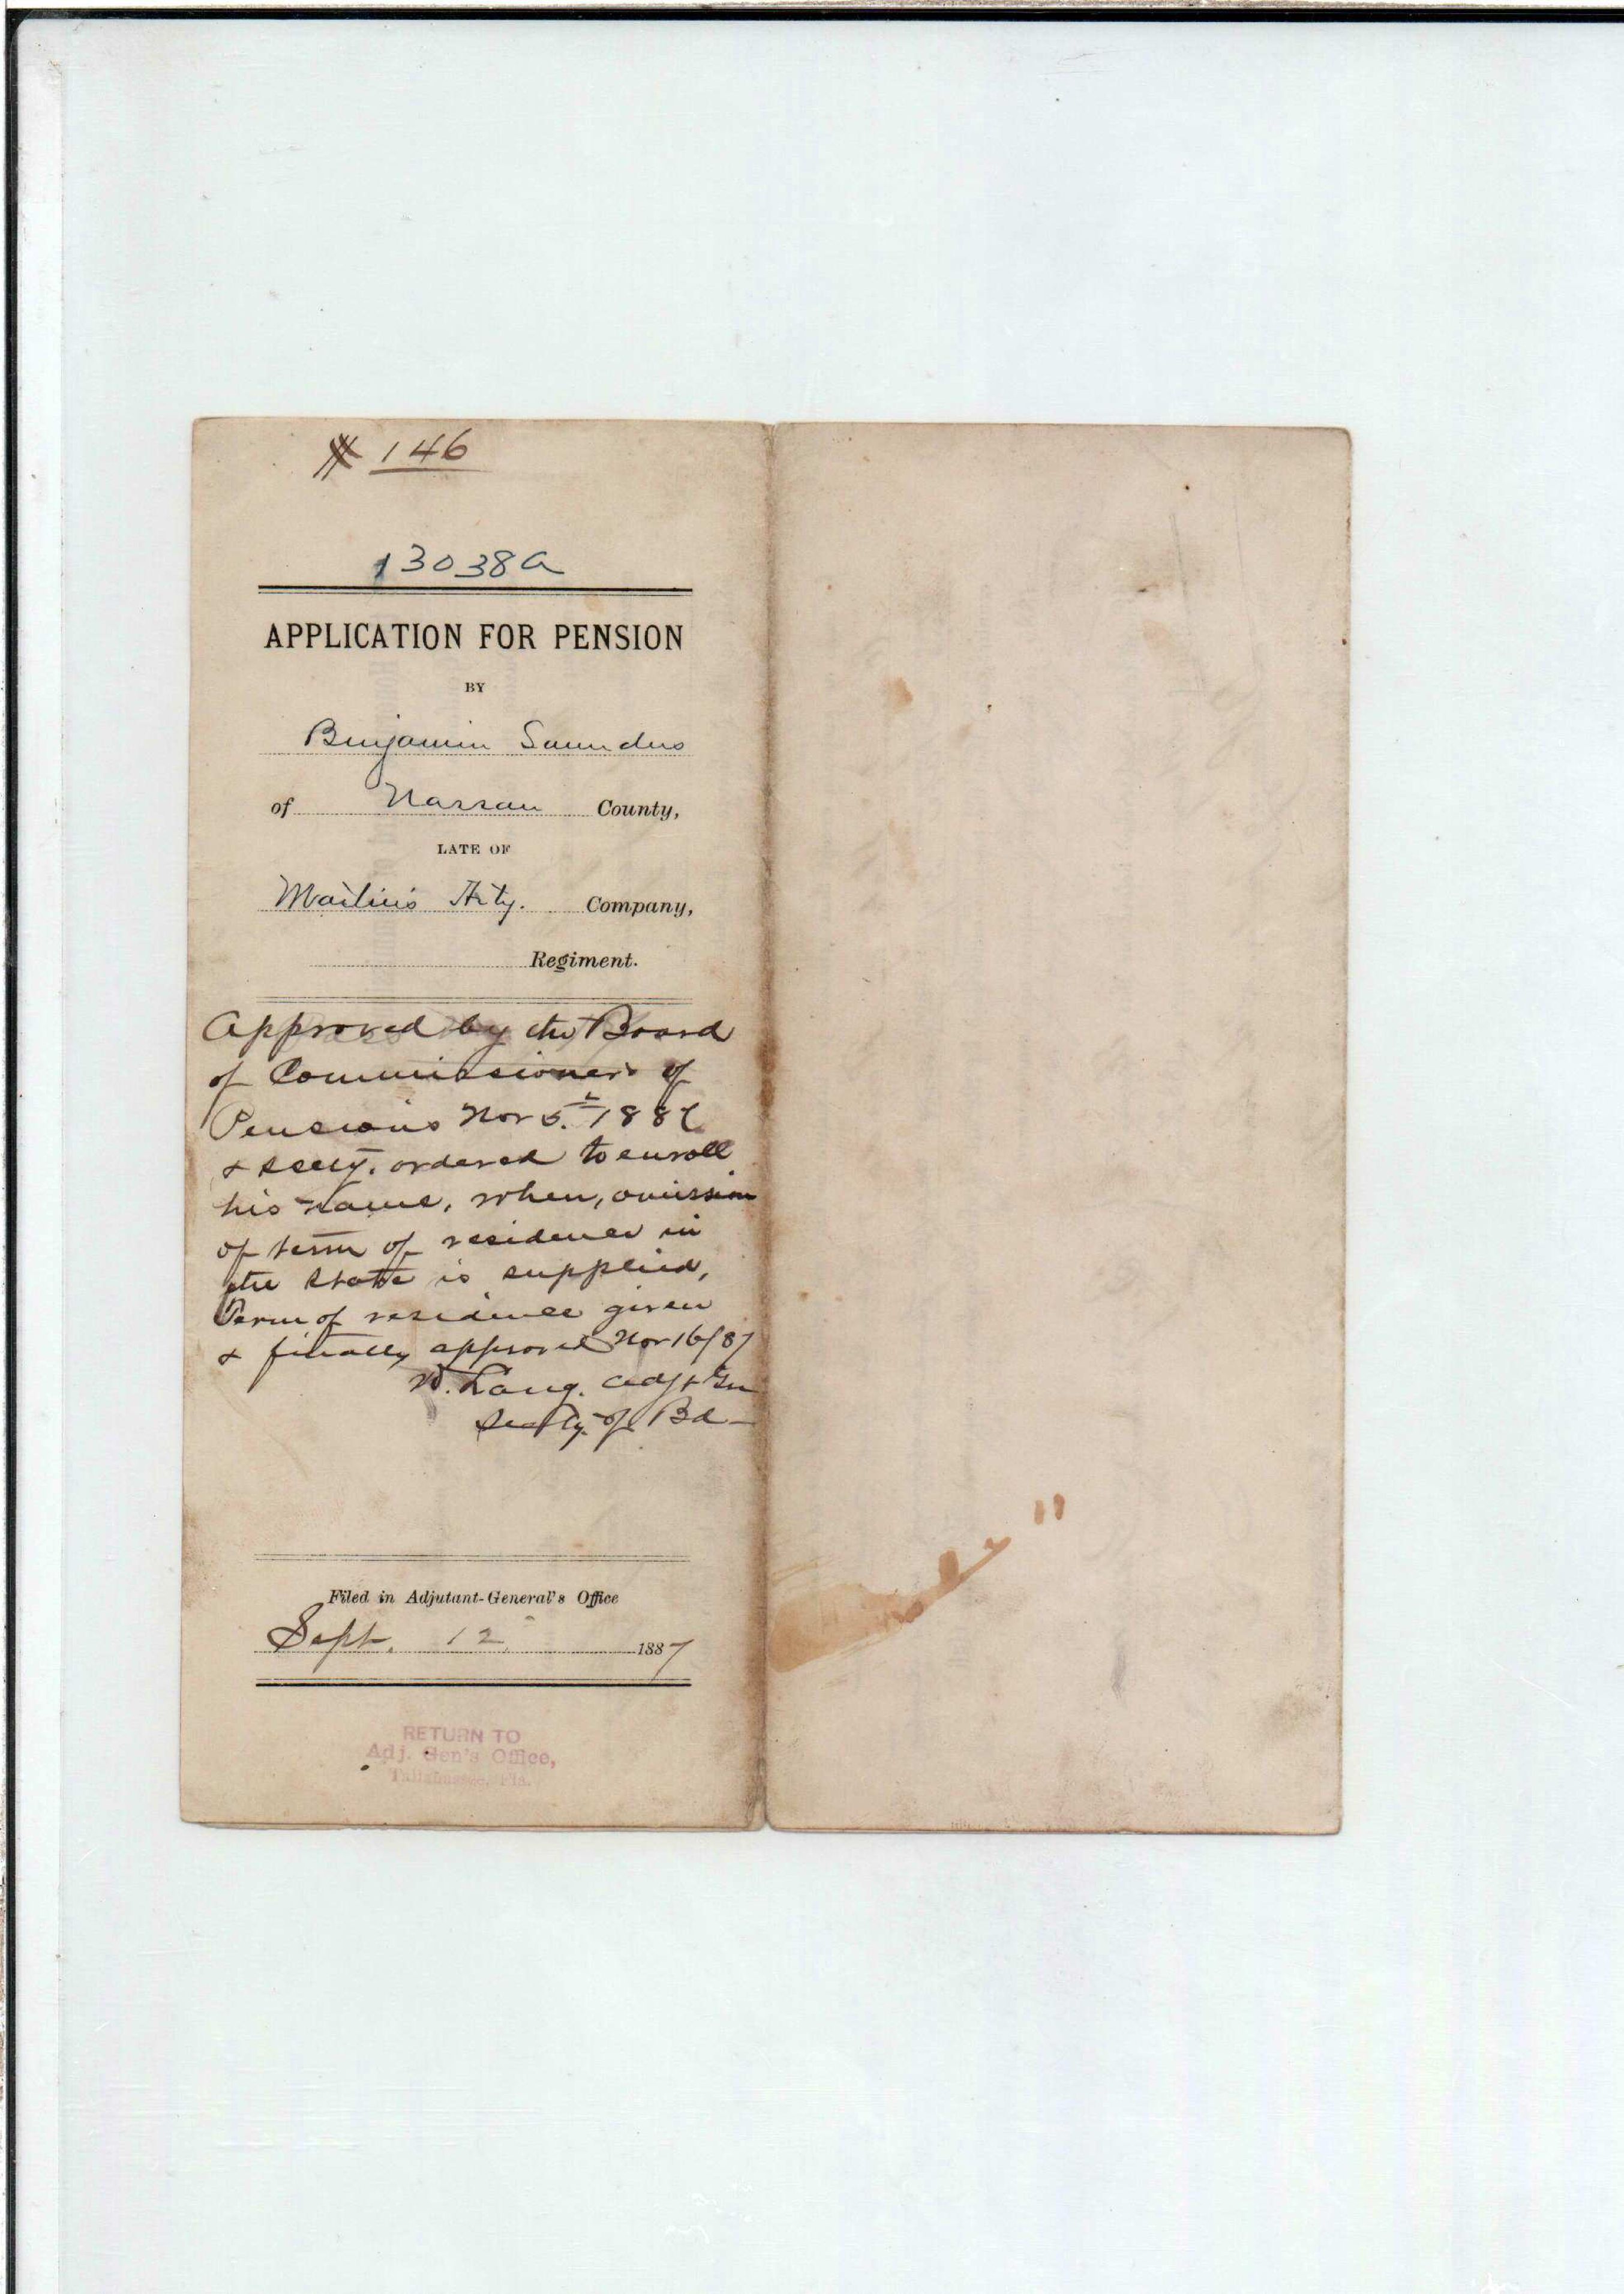 # 146
13038a
APPLICATION FOR PENSION
BY
Benjamin Saunders
of Nassau County,
LATE OF
Martin's Arty. Company,
Regiment.
Approved by the Board
of Commissioners of
Pensions Nov 5th 1887
& Secty. ordered to enroll
his name, when, omission
of term of residence in
the State is supplied,
Term of residence given
& finally approved Nov 16/87
D. Lang. Adjt Gen
Secty. of Bd
Filed in Adjutant-General's Office
Sept. 12 1887
RETURN TO
Adj. Gen's Office,
Tallahassee, Fla.